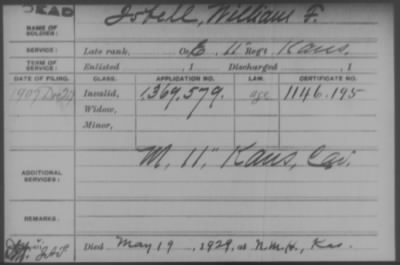 DEAD
NAME OF SOLDIER: Isbell, William F.
SERVICE: Late rank, Co E, 11" Reg't Kans.
TERM OF SERVICE: Enlisted , 1 Discharged , 1
DATE OF FILING. CLASS. APPLICATION NO. LAW. CERTIFICATE NO.
1907 Invalid, 1,369,579. age 1146.195
Widow,
Minor,
ADDITIONAL SERVICES: M, 11" Kans, Cav.
REMARKS:
Died May 19, 1929, at N.M.H., Kas.